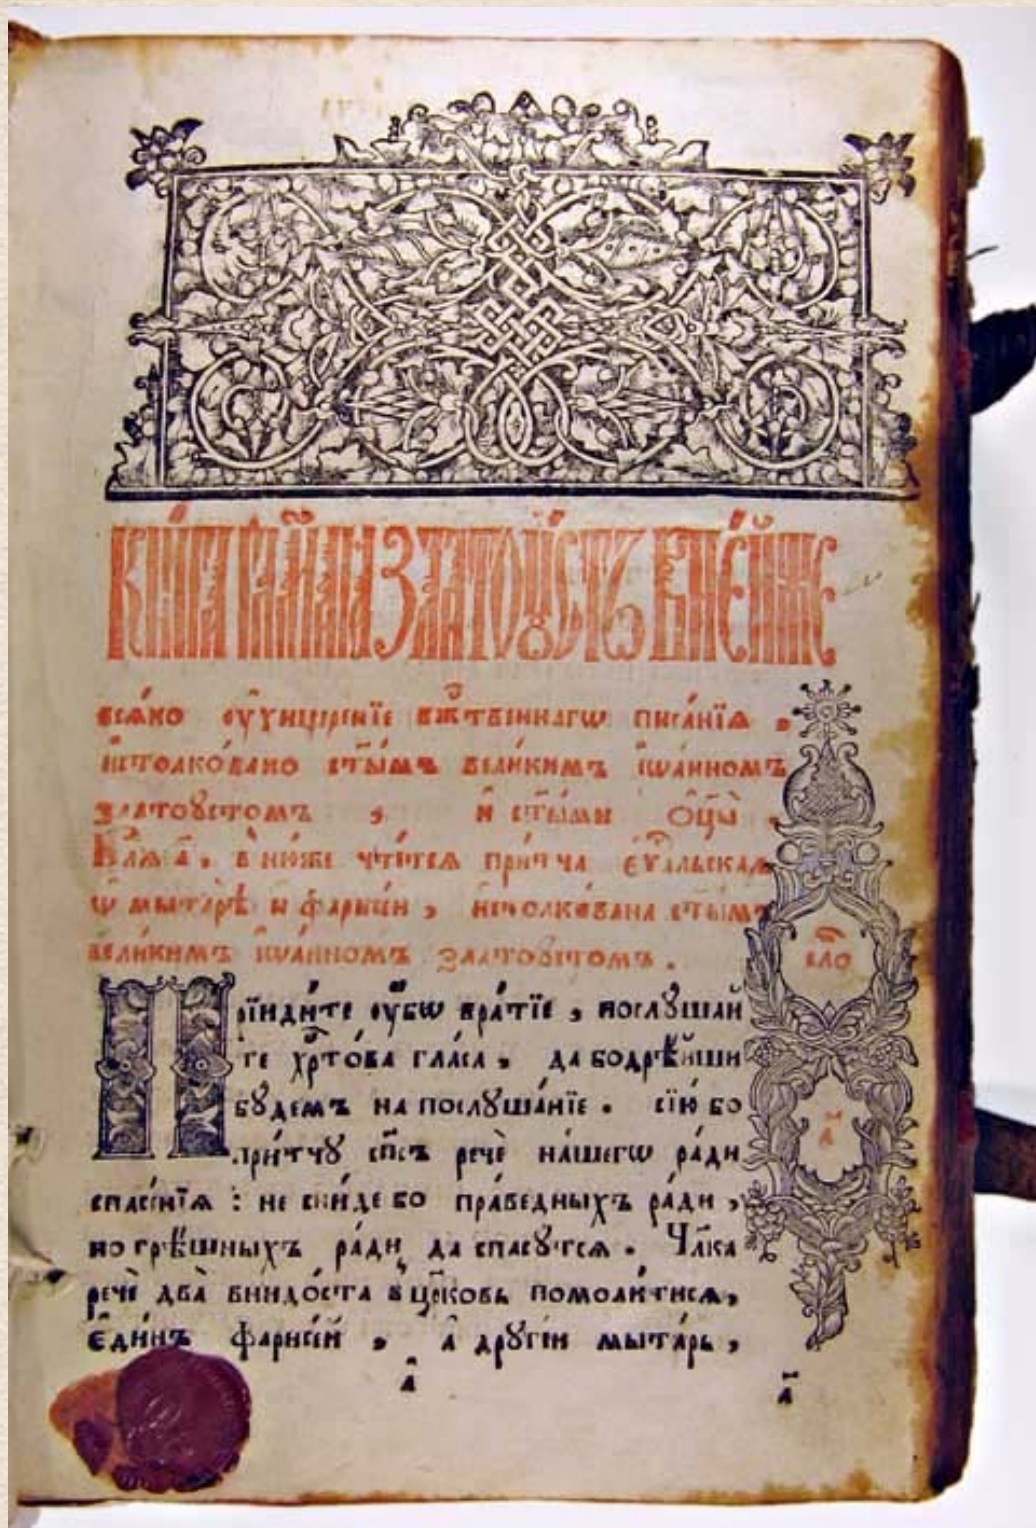 кни́га глаго́лемая златоу́стъ в не́йже
вся́ко оу҆хищре́нїе бж҃твеннагѡ писа́нїя,
и҆столко́вано ст҃ы́мъ вели́кимъ і҆ѡа́нномъ
златоустомъ, и҆ ст҃ы́ми ѻ҆ц҃ы̀.
в ню́же чте́тся при́тча є҆ѵ҃льская
ѡ҆ мытарѣ̀ и҆ фарисе́и, и҆столко́вана ст҃ы́мъ
вели́кимъ і҆ѡа́нномъ златоꙋ́стомъ.
Прїиди́те оу҆́бѡ бра́тїе, послꙋ́шай
те хрⷭ҇то́ва гла́са, да бодрѣ́йши
бꙋ́демъ на послꙋша́нїе. сїю́ бо
при́тчꙋ сп҃съ речѐ на́шегѡ ра́ди
спасе́нїя: не сни́де бо пра́ведныхъ ра́ди,
но грѣ́шныхъ ра́ди, да спасꙋ́тся. Чл҃ка
речѐ два̀ внидо́ста в цр҃ковь помоли́тися,
є҆ди́нъ фарисе́й, а҆ дрꙋгі́й мыта́рь,
сло́
а҃
а҃ а҃